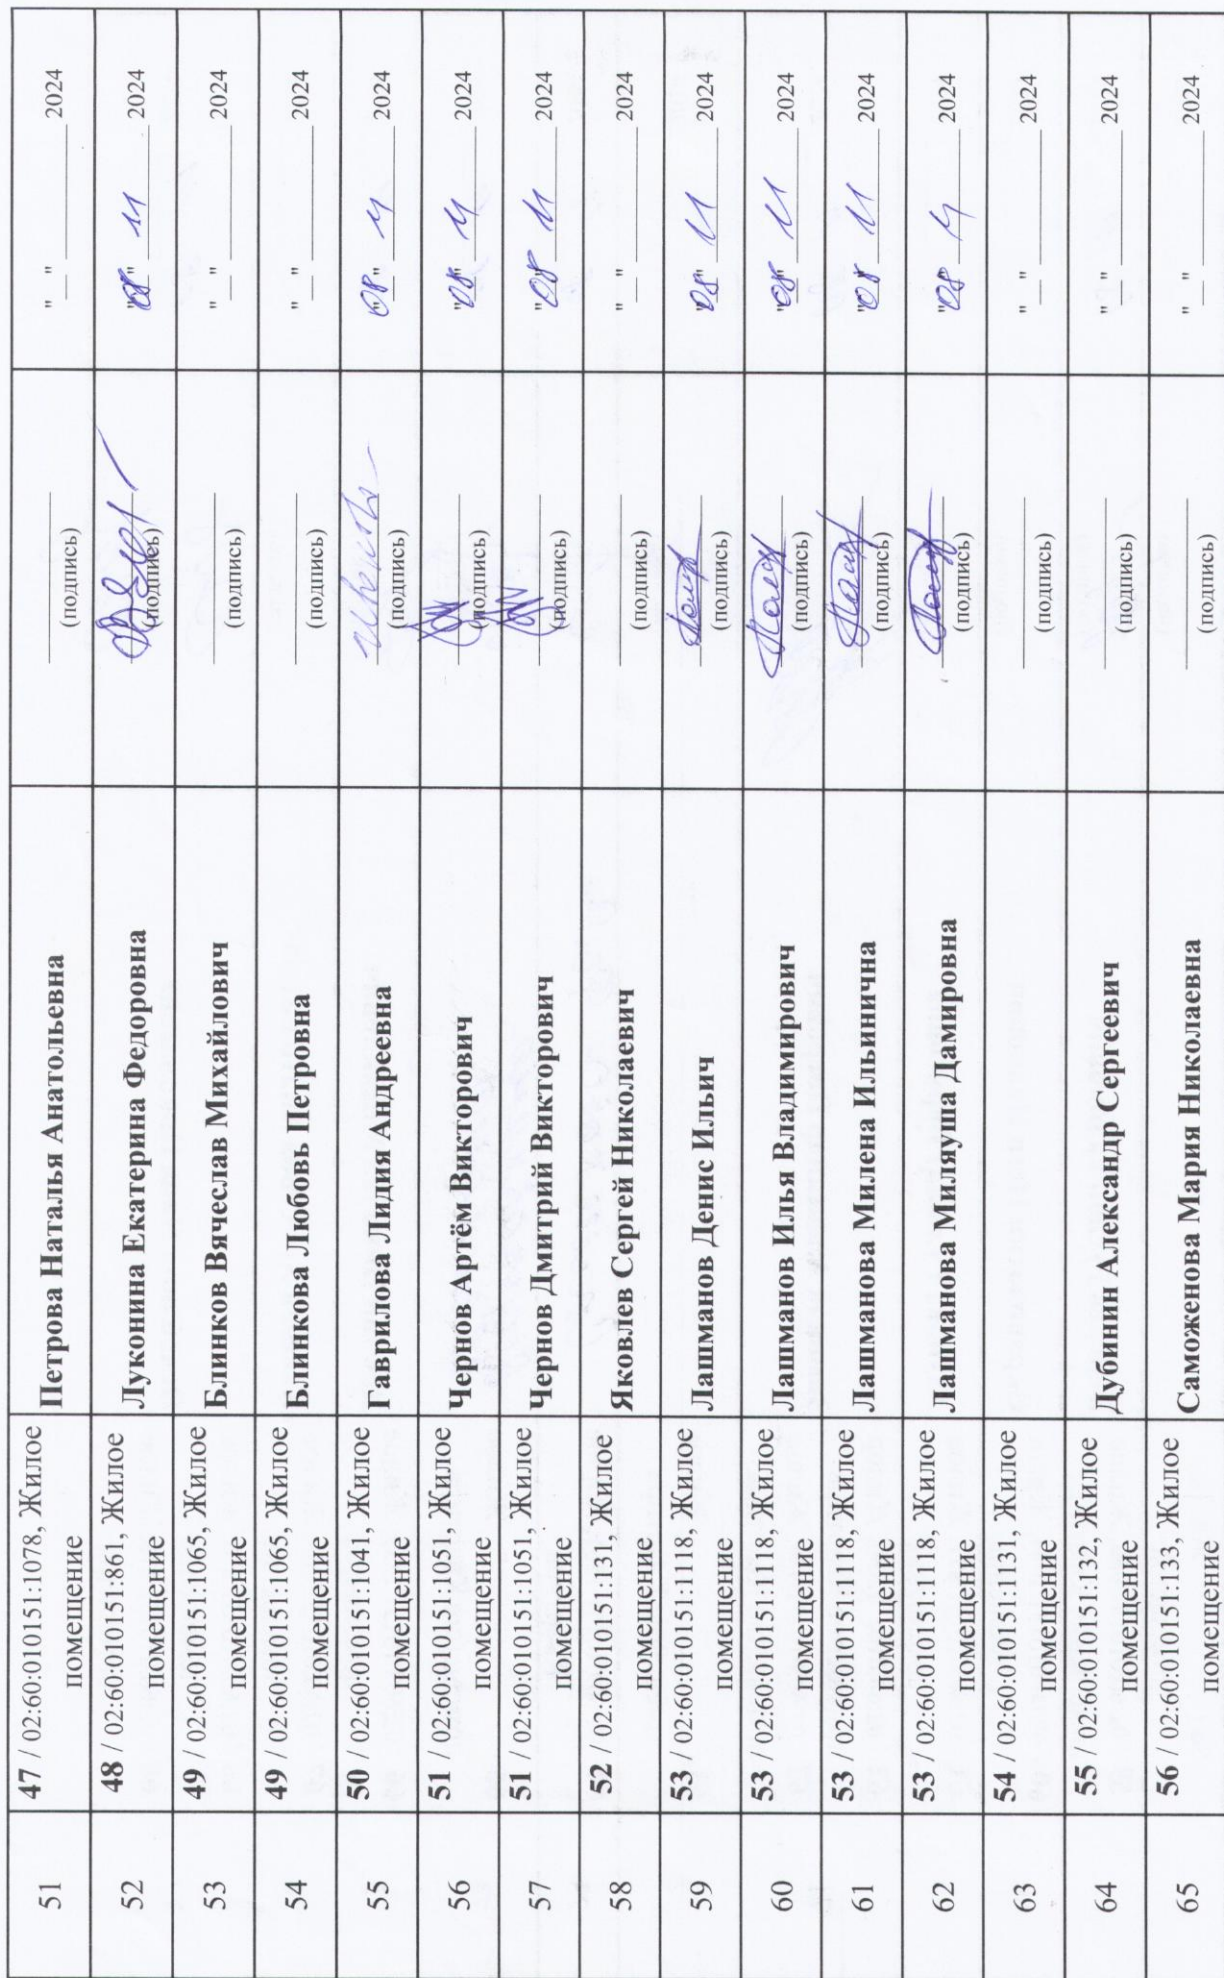 51 47 / 02:60:010151:1078, Жилое помещение Петрова Наталья Анатольевна (подпись) "__" ________ 2024
52 48 / 02:60:010151:861, Жилое помещение Луконина Екатерина Федоровна (подпись) "08" 11 2024
53 49 / 02:60:010151:1065, Жилое помещение Блинков Вячеслав Михайлович (подпись) "__" ________ 2024
54 49 / 02:60:010151:1065, Жилое помещение Блинкова Любовь Петровна (подпись) "__" ________ 2024
55 50 / 02:60:010151:1041, Жилое помещение Гаврилова Лидия Андреевна (подпись) "08" 11 2024
56 51 / 02:60:010151:1051, Жилое помещение Чернов Артём Викторович (подпись) "08" 11 2024
57 51 / 02:60:010151:1051, Жилое помещение Чернов Дмитрий Викторович (подпись) "08" 11 2024
58 52 / 02:60:010151:131, Жилое помещение Яковлев Сергей Николаевич (подпись) "__" ________ 2024
59 53 / 02:60:010151:1118, Жилое помещение Лашманов Денис Ильич (подпись) "08" 11 2024
60 53 / 02:60:010151:1118, Жилое помещение Лашманов Илья Владимирович (подпись) "08" 11 2024
61 53 / 02:60:010151:1118, Жилое помещение Лашманова Милена Ильинична (подпись) "08" 11 2024
62 53 / 02:60:010151:1118, Жилое помещение Лашманова Миляуша Дамировна (подпись) "08" 11 2024
63 54 / 02:60:010151:1131, Жилое помещение (подпись) "__" ________ 2024
64 55 / 02:60:010151:132, Жилое помещение Дубинин Александр Сергеевич (подпись) "__" ________ 2024
65 56 / 02:60:010151:133, Жилое помещение Саможенова Мария Николаевна (подпись) "__" ________ 2024